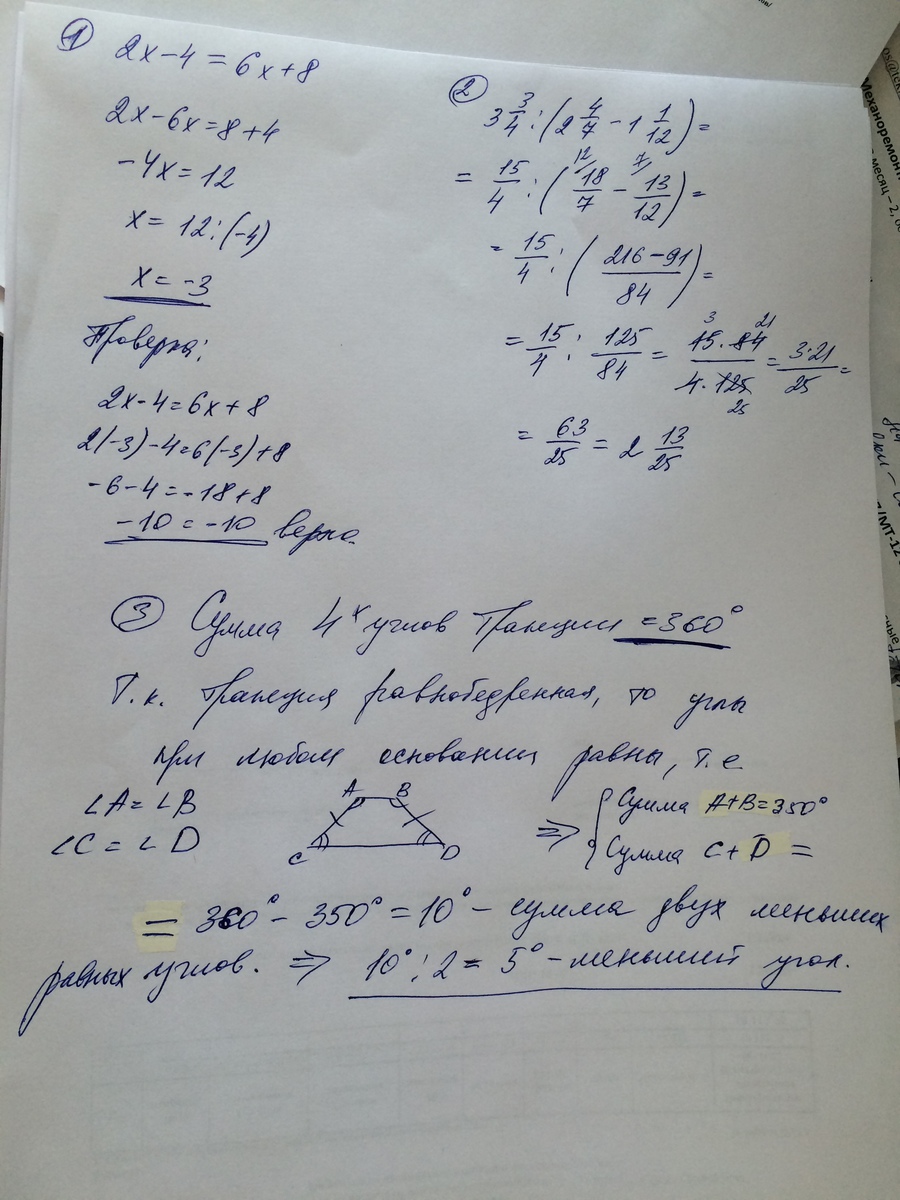 1
2x-4=6x+8
2x-6x=8+4
-4x=12
x=12:(-4)
x=-3
Проверка:
2x-4=6x+8
2(-3)-4=6(-3)+8
-6-4=-18+8
-10=-10 верно.
2
3 3/4 : (2 4/7 - 1 1/12) =
= 15/4 : (18/7 - 13/12) =
12 7
= 15/4 : (216-91/84) =
= 15/4 : 125/84 = 15·84/4·125 = 3·21/25 =
3 21
25
= 63/25 = 2 13/25
3 Сумма 4х углов трапеции =360°
Т.к. трапеция равнобедренная, то углы
при любом основании равны, т.е
∠A=∠B
∠C=∠D
A B
C D
⇒ { Сумма A+B=350°
Сумма C+D =
= 360°-350°=10°- сумма двух меньших
равных углов. ⇒ 10°:2=5°-меньший угол.
Механоремонт
месяц – 2,
/МТ-12